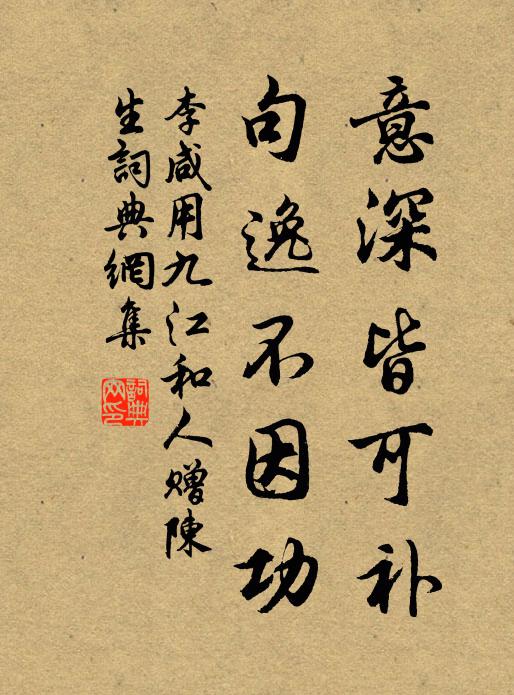 意深皆可补
句逸不因功
李咸用九江和人赠陳
生詞典網集
詞典